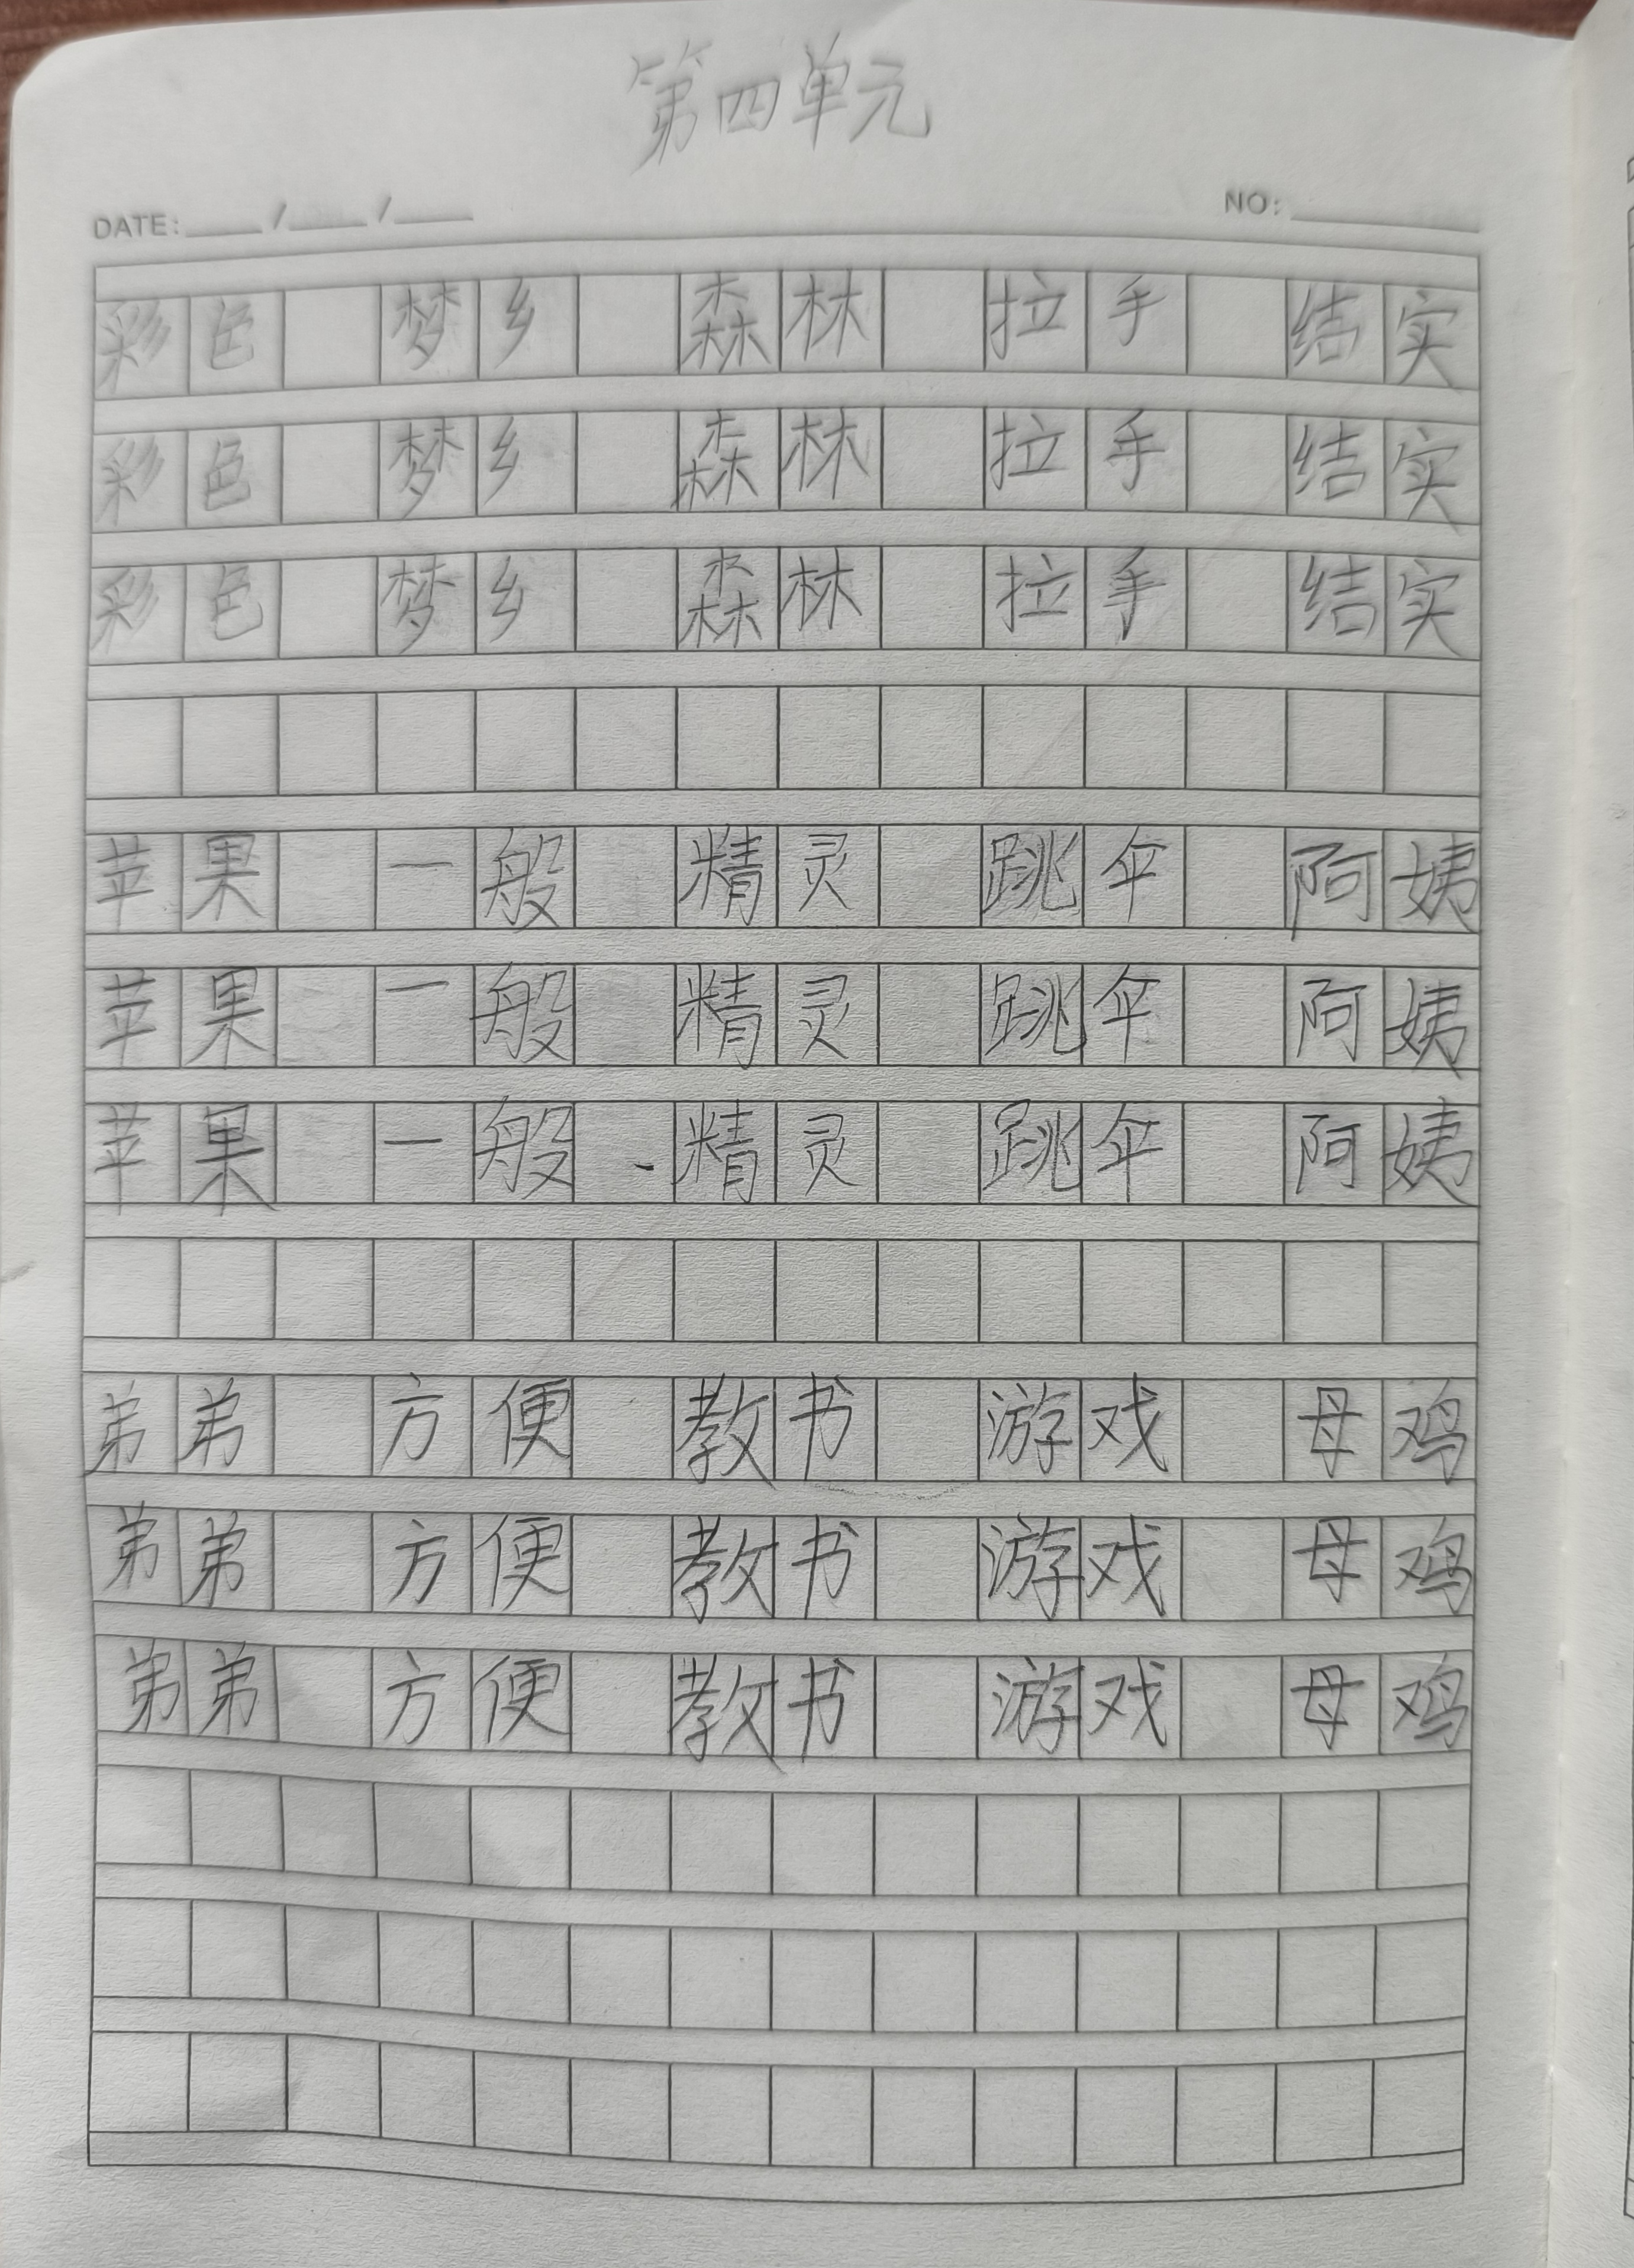 第四单元
DATE: / / NO:
彩色 梦乡 森林 拉手 结实
彩色 梦乡 森林 拉手 结实
彩色 梦乡 森林 拉手 结实
苹果 一般 精灵 跳伞 阿姨
苹果 一般 精灵 跳伞 阿姨
苹果 一般 精灵 跳伞 阿姨
弟弟 方便 教书 游戏 母鸡
弟弟 方便 教书 游戏 母鸡
弟弟 方便 教书 游戏 母鸡